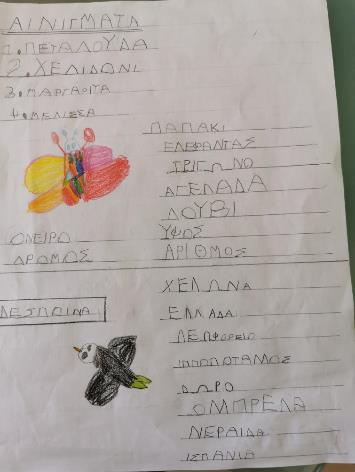 ΑΙΝΙΓΜΑΤΑ
1. ΠΕΤΑΛΟΥΔΑ
2. ΧΕΛΙΔΟΝΙ
3. ΜΑΡΓΑΡΙΤΑ
4. ΜΕΛΙΣΣΑ
ΠΑΠΑΚΙ
ΕΛΕΦΑΝΤΑΣ
ΤΡΙΓΩΝΟ
ΑΓΕΛΑΔΑ
ΛΟΥΒΙ
ΟΝΕΙΡΟ ΥΨΟΣ
ΔΡΟΜΟΣ ΑΡΙΘΜΟΣ
ΧΕΛΩΝΑ
ΔΕΣΠΟΙΝΑ ΕΛΛΑΔΑ
ΛΕΩΦΟΡΕΙΟ
ΙΠΠΟΠΟΤΑΜΟΣ
ΔΩΡΟ
ΟΜΠΡΕΛΑ
ΝΕΡΑΙΔΑ
ΙΣΠΑΝΙΑ